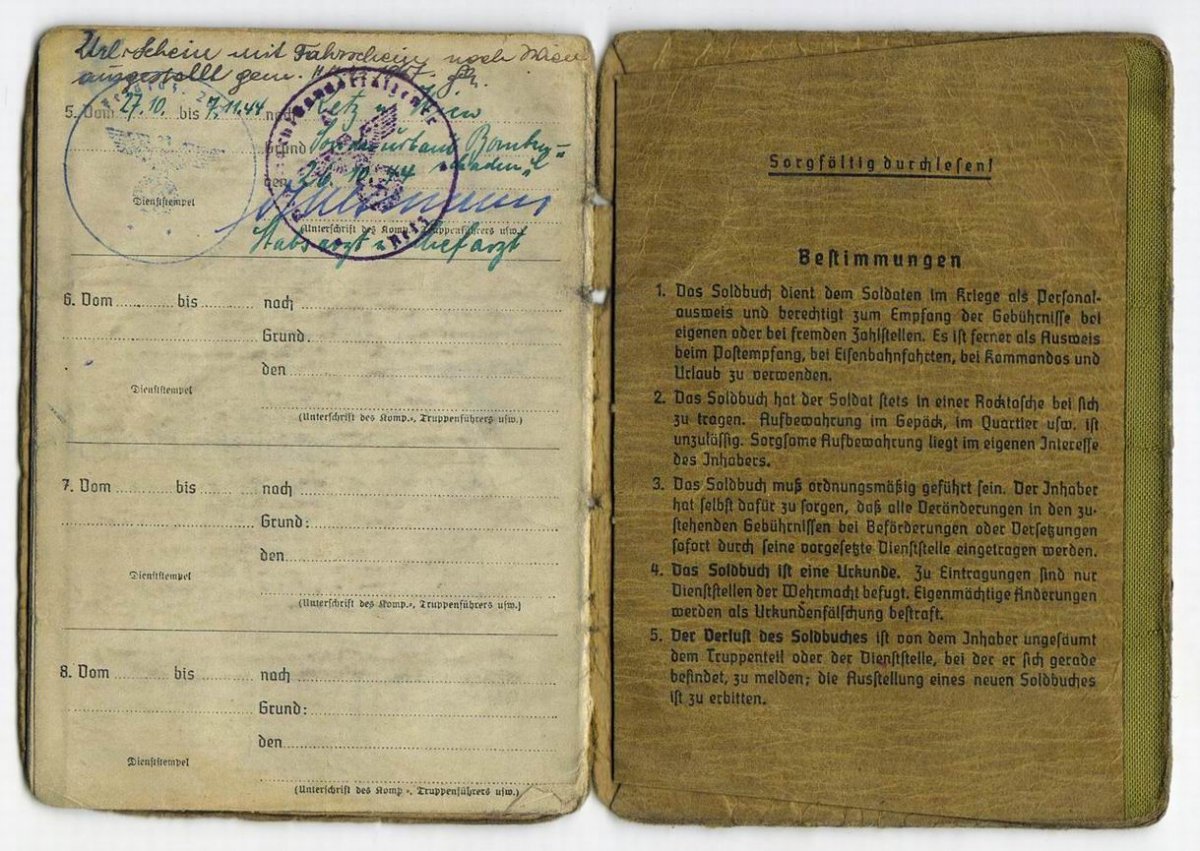 Url. Schein mit Fahrschein nach Wien
ausgestellt gem.
5. Vom 27.10. bis 7.11.44 nach Retz u. Wien
Grund Sonderurlaub Bomben-
schaden
den 26.10.44
Dienststempel
(Unterschrift des Komp.-, Truppenführers usw.)
Stabsarzt u. Chefarzt
6. Vom bis nach
Grund:
den
Dienststempel
(Unterschrift des Komp.-, Truppenführers usw.)
7. Vom bis nach
Grund:
den
Dienststempel
(Unterschrift des Komp.-, Truppenführers usw.)
8. Vom bis nach
Grund:
den
Dienststempel
(Unterschrift des Komp.-, Truppenführers usw.)
Sorgfältig durchlesen!
Bestimmungen
1. Das Soldbuch dient dem Soldaten im Kriege als Personal-
ausweis und berechtigt zum Empfang der Gebührnisse bei
eigenen oder bei fremden Zahlstellen. Es ist ferner als Ausweis
beim Postempfang, bei Eisenbahnfahrten, bei Kommandos und
Urlaub zu verwenden.
2. Das Soldbuch hat der Soldat stets in einer Rocktasche bei sich
zu tragen. Aufbewahrung im Gepäck, im Quartier usw. ist
unzulässig. Sorgsame Aufbewahrung liegt im eigenen Interesse
des Inhabers.
3. Das Soldbuch muß ordnungsmäßig geführt sein. Der Inhaber
hat selbst dafür zu sorgen, daß alle Veränderungen in den zu-
stehenden Gebührnissen bei Beförderungen oder Versetzungen
sofort durch seine vorgesetzte Dienststelle eingetragen werden.
4. Das Soldbuch ist eine Urkunde. Zu Eintragungen sind nur
Dienststellen der Wehrmacht befugt. Eigenmächtige Änderungen
werden als Urkundenfälschung bestraft.
5. Der Verlust des Soldbuches ist von dem Inhaber ungesäumt
dem Truppenteil oder der Dienststelle, bei der er sich gerade
befindet, zu melden; die Ausstellung eines neuen Soldbuches
ist zu erbitten.